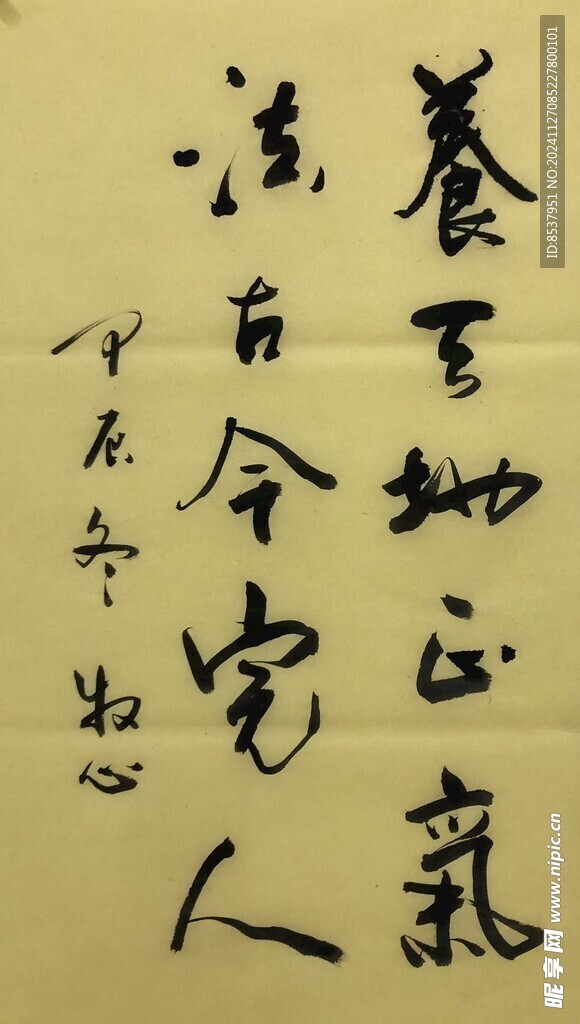 養天地正氣
法古今完人
甲辰冬 牧心
ID:8537951 NO:20241127085227800101
昵享网 www.nipic.cn